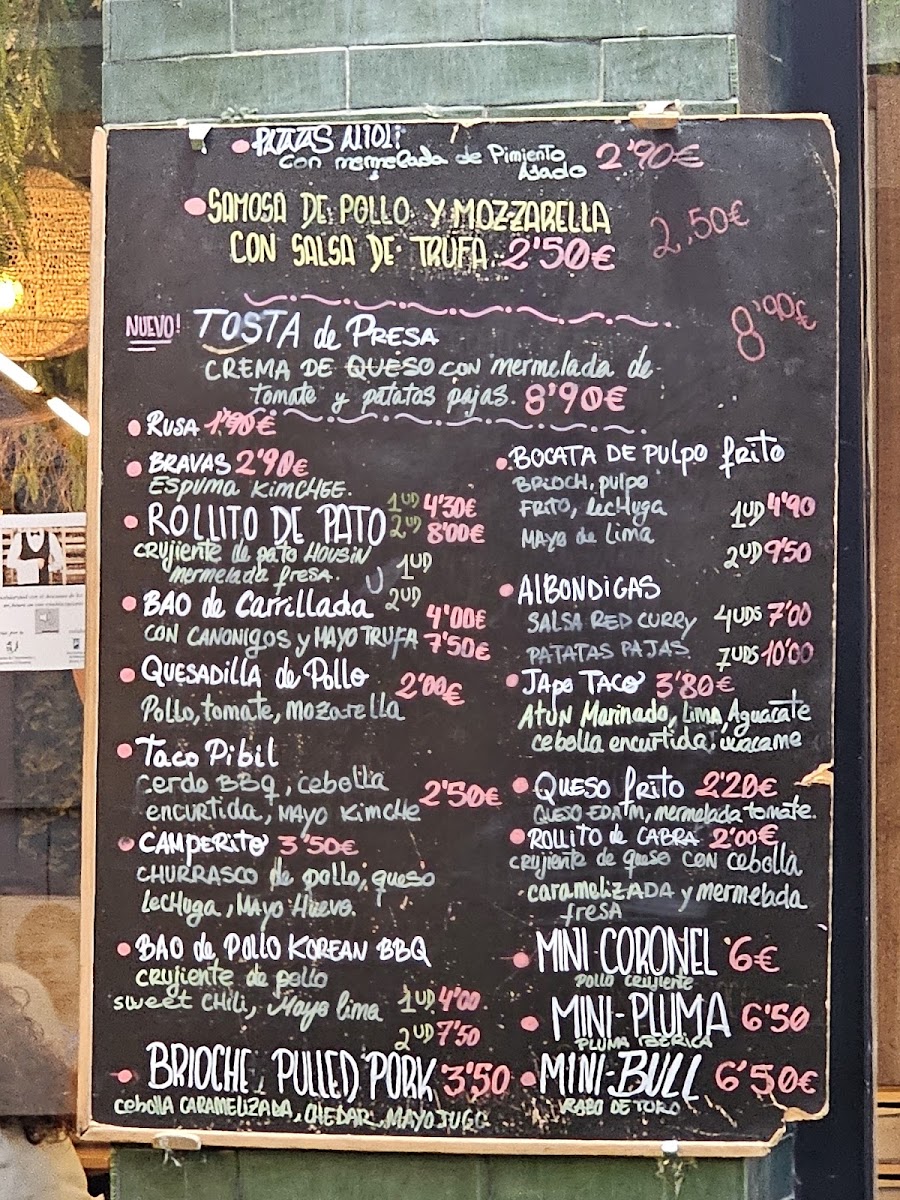 PATATAS ALIOLI
con mermelada de Pimiento
Asado 2'90€
SAMOSA DE POLLO Y MOZZARELLA
CON SALSA DE TRUFA 2'50€
2,50€
NUEVO! TOSTA de PRESA
8'90€
CREMA DE QUESO CON mermelada de
tomate y patatas pajas. 8'90€
RUSA 1'90€
BRAVAS 2'90€
ESPUMA KIMCHEE.
ROLLITO DE PATO
1UD 4'30€
2UD 8'00€
crujiente de pato HOUSIN
mermelada fresa.
1UD
2UD
BAO de Carrillada 4'00€
CON CANONIGOS y MAYO TRUFA 7'50€
QUESADILLA de Pollo 2'00€
Pollo, tomate, mozarella
Taco Pibil
cerdo BBQ, cebolla
encurtida, MAYO KimCHe 2'50€
CAMPERITO 3'50€
CHURRASCO de pollo, queso
lecHuga, Mayo Huevo.
BAO de POLLO KOREAN BBQ
crujiente de pollo
sweet CHILI, Mayo lima
1UD 4'00
2UD 7'50
BRIOCHE PULLED PORK 3'50
cebolla CARAMELIZADA, CHEDAR, MAYO JUGO
BOCATA DE PULPO frito
BRIOCH, pulpo
FRITO, lecHuga
MAYO de lima
1UD 4'90
2UD 9'50
ALBONDIGAS
SALSA RED CURRY 4UDS 7'00
PATATAS PAJAS 7UDS 10'00
JAPO TACO 3'80€
ATUN Marinado, LIMA, Aguacate
cebolla encurtida,
QUESO frito 2'20€
QUESO EDAM, mermelada tomate.
ROLLITO de CABRA 2'00€
crujiente de queso CON cebolla
caramelizADA y mermelada
fresa
MINI CORONEL 6€
POLLO CRUJIENTE
MINI-PLUMA 6'50
PLUMA IBERICA
MINI-BULL 6'50€
RABO DE TORO